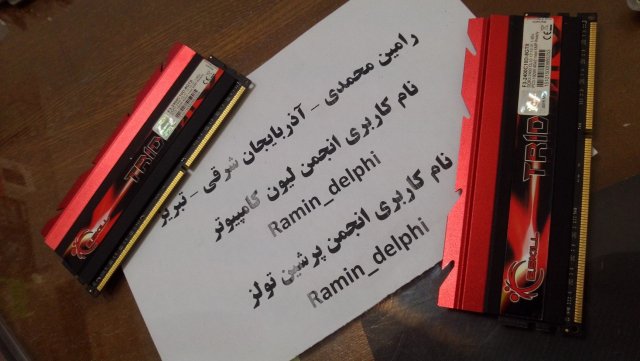 رامین محمدی – آذربایجان شرقی – تبریز
نام کاربری انجمن لیون کامپیوتر
Ramin_delphi
نام کاربری انجمن پرشین تولز
Ramin_delphi
TRID
G.SKILL
TRID
G.SKILL